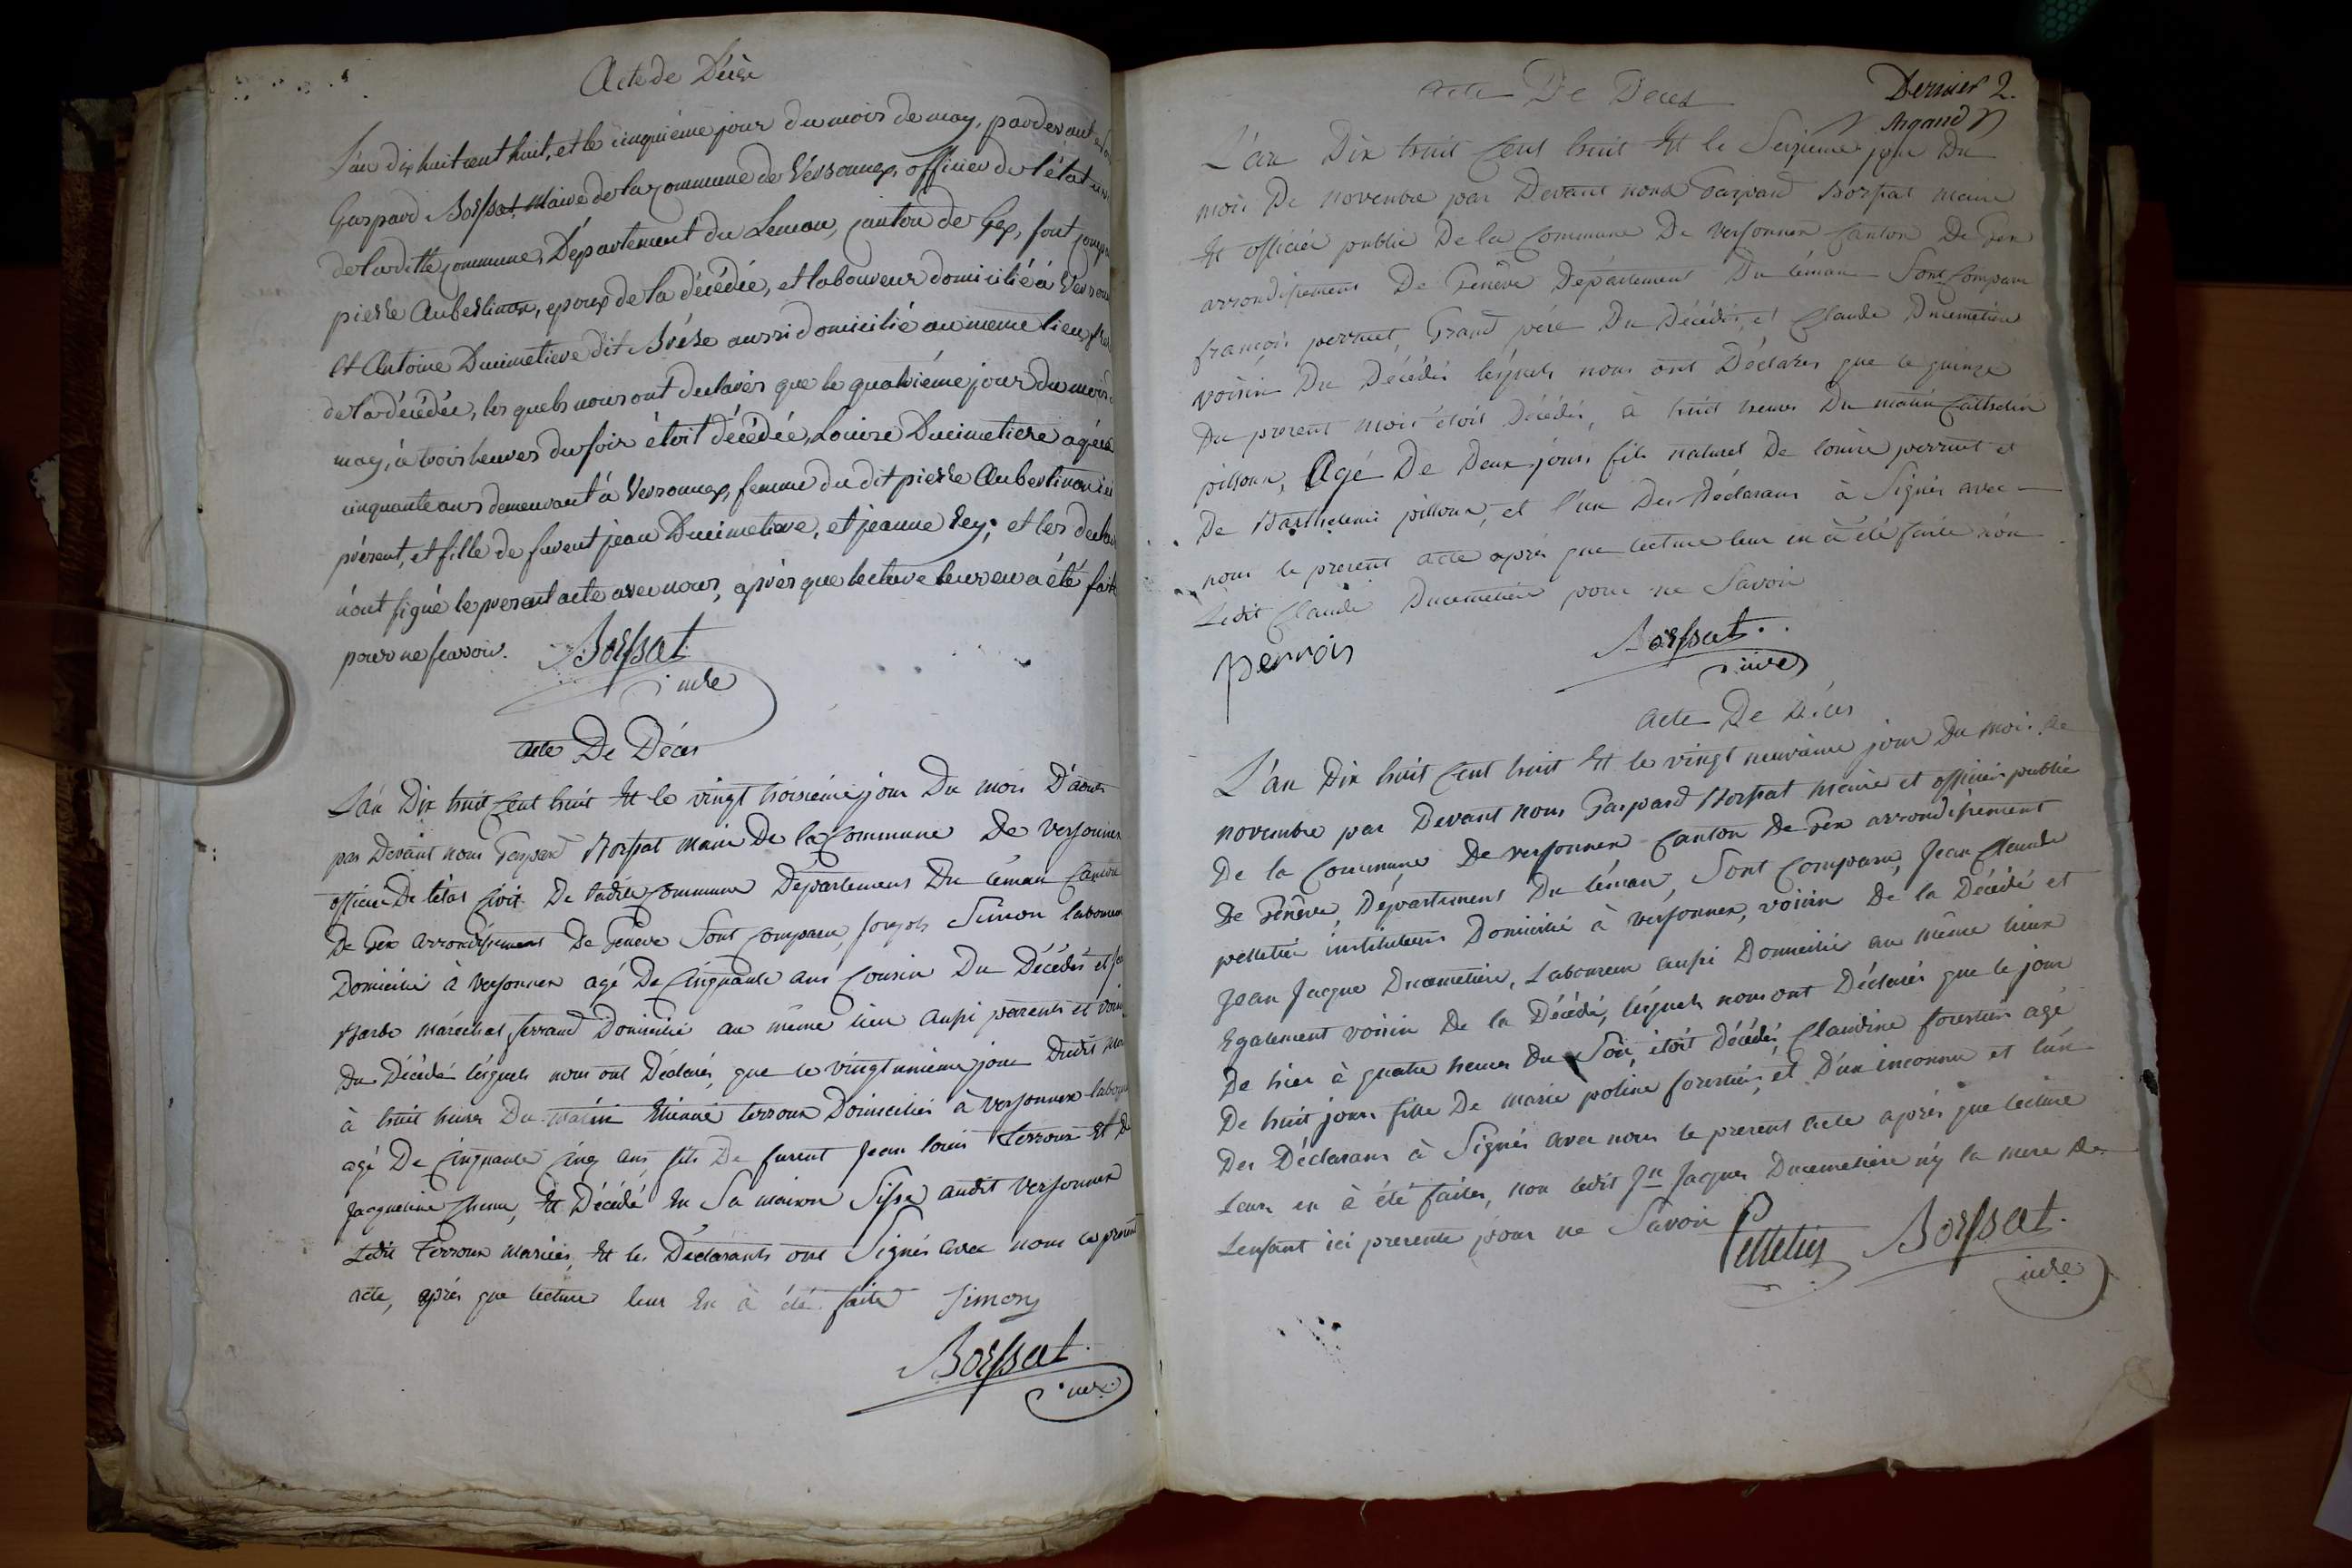 Acte de Décès
L'an dix huit cent huit, et le cinquième jour du mois de may, pardevant
Gaspard Borssat Maire de la commune de Versonnex, officier de l'état
de laditte commune, Département du Leman, canton de Gex, sont
pierre Aubertinon, epoux de la décédée, et laboureur domicilié à
et Antoine Ducimetiere dit aussi domicilié au meme lieu,
de la décédée, les quels nous ont declarés que le quatriéme jour du mois
may, à trois heures du soir étoit décédée, Louise Ducimetiere agée
cinquante ans demeurant à Versonnex, femme du dit pierre
présent, et fille de furent jean Ducimetiere, et jeanne Rey; et les
n'ont signé le present acte avec nous, après que lecture leur en a été
pour ne scavoir. Borssat
mre
acte De Décès
L'an Dix huit Cent huit Et le vingt troisiéme jour Du mois D'aout
par Devant nous Gaspard Borssat maire De la Commune De
officier De l'état Civil De ladite Commune Département Du Léman Canton
De Gex arrondissement De Genève Sont Comparu, Joseph Simon
Domicilié à versonnex agé De Cinquante ans Cousin Du Décédés et
Barbe maréchal ferrand Domicilié au même lieu aussi parents et
Du Décédé lésquels nous ont Déclarés, que le vingt unième jour Dudit
à huit heures Du matin Etienne terroux Domiciliés à versonnex
agé De Cinquante Cinq ans, fils De furent Jean louis terroux Et
Jacqueline Et Décédé En Sa maison Sisse audit versonnex
Ledit terroux mariés, Et les Déclarants ont Signés avec nous le
acte, après que lecture leur En à été faite Simon
Borssat
mre
acte De Décès
Dernier 2.
Argand
L'an Dix huit Cent huit Et le Seizieme jour Du
mois De novembre par Devant nous Gaspard Borssat maire
Et officier public De la Commune De versonnex Canton De Gex
arrondissement De Genève Département Du léman Sont Comparu
françois perruet, Grand pére Du Décédés, et Claude Ducemetiére
voisin Du Décédés lésquels nous ont Déclarés que le quinze
Du present mois étoit Décédés, à huit heures Du matin
pilloux, Agé De Deux jours fils naturel De louise perruet et
De Barthelemi pilloux, et l'un Des Déclarans à Signés avec
nous le present acte après que lecture leur en à été faite non
Ledit Claude Ducemetiére pour ne Savoir
Borssat
mre
acte De Décès
L'an Dix huit Cent huit Et le vingt neuvième jour Du mois de
novembre par Devant nous Gaspard Borssat maire et officier public
De la Commune De versonnex Canton De Gex arrondissement
De Genève, Département Du léman, Sont Comparu, Jean Claude
pelletier instituteur Domicilié à versonnex, voisin De la Décédé et
Jean Jacque Ducemetière, Laboureur aussi Domicilié au même lieux
Egalement voisin De la Décédé, lésquels nous ont Déclarés que le jour
De hier à quatre heures Du Soir, étoit Décédés, Claudine forestier agé
De huit jours fille De marie poline forestier, et D'un inconnu et l'un
Des Déclarans à Signés avec nous le present acte après que lecture
Leur en à été faites, non ledit Jn Jacques Ducemetière ny la mere de
Lenfant ici presente pour ne Savoir Pelletier Borssat
mre